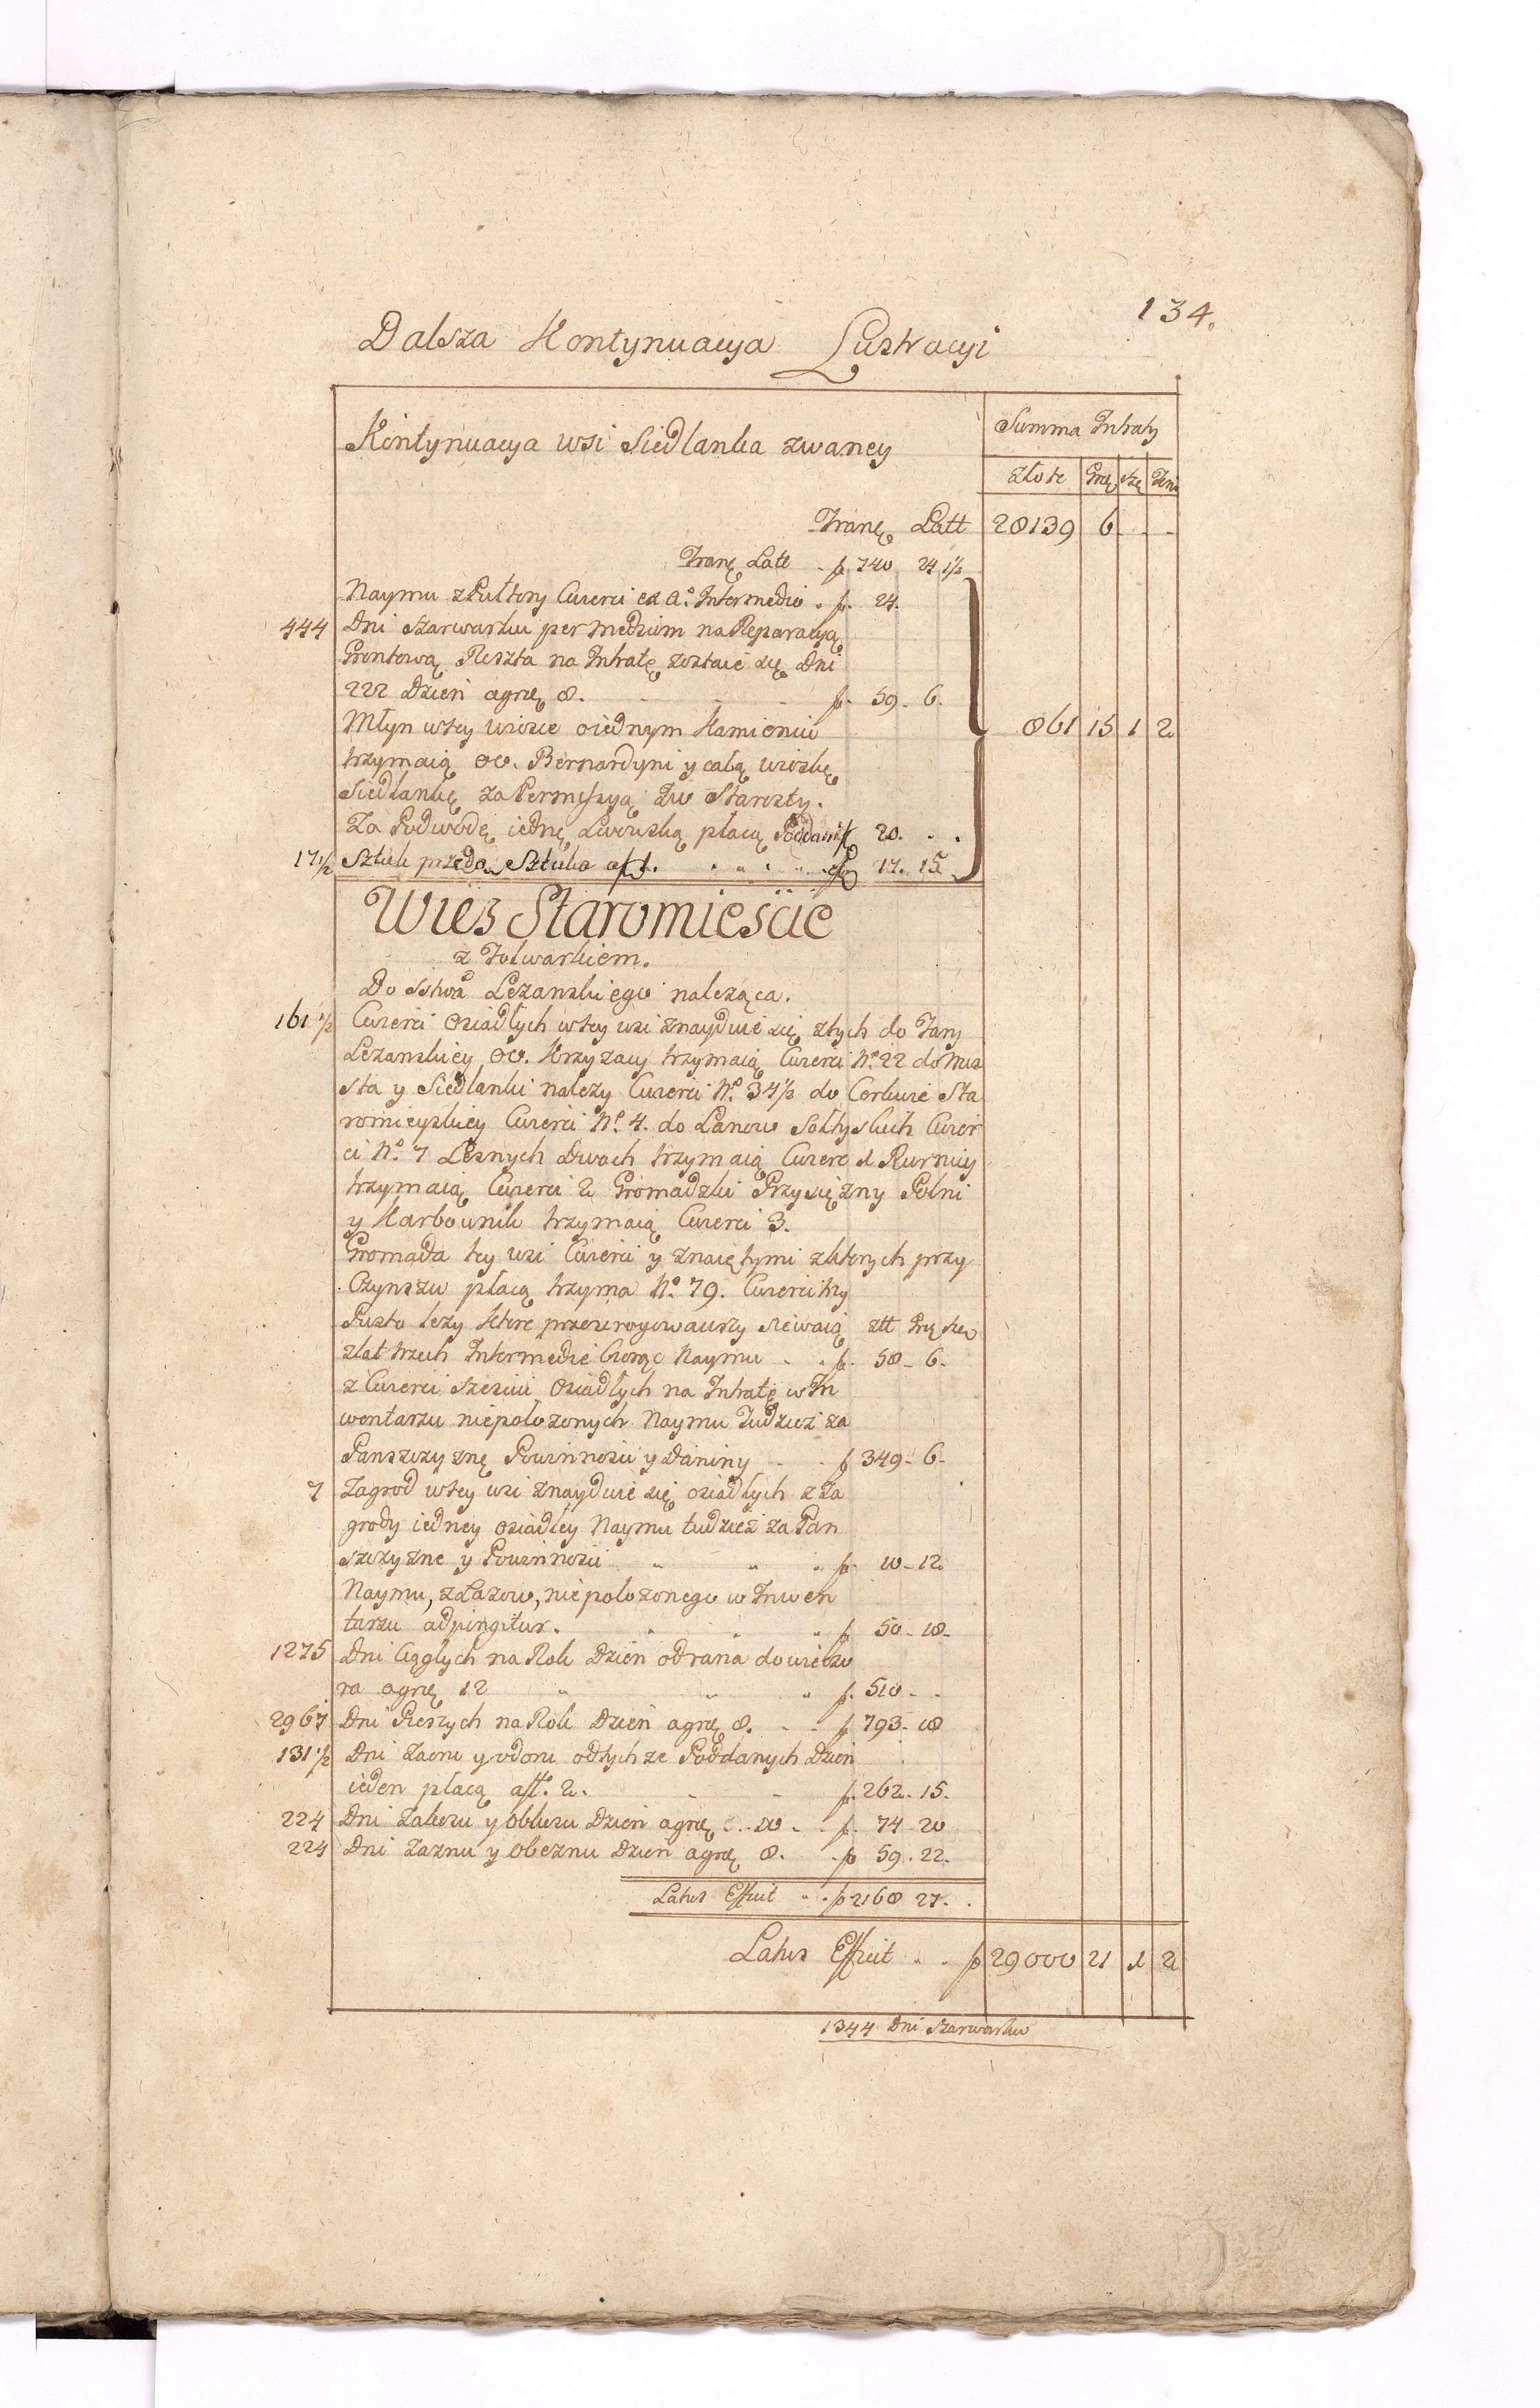 134.
Dalsza Kontynuacya Lustracyi
Kontynuacya wsi Siedlanka zwaney
Summa Intraty
złote Grę Szę Den
Tranę Latt 28139 6 - -
Tranę Latt - f. 740 24 1/2
Naymu z Pułtory Cwierci ex a.o Intermedio . f. 24.
444 Dni szarwarku per medium na Reparacyą
Grontową Reszta na Intratę zostaie się Dni
222 Dzień agrę 8. - - - f. 59. 6.
Młyn wtey wiosce oiednym Kamieniu 861 15 1 2
trzymaią oo. Bernardyni y całą wioskę
Siedlankę za Permissyą Jw Starosty.
Za Podwodę iednę Lwowską płacą Poddani f. 20. . .
17 1/2 Sztuk przędą Sztuka af 1. f. 17. 15
Wieś Staromieście
z Folwarkiem.
Do Sstwa Leżanskiego należąca.
161 1/2 Cwierci Osiadłych wtey wsi znayduie się ztych do Fary
Leżanskiey OO. Krzyżacy trzymaią Cwierci No. 22 do Mia
sta y Siedlanki należy Cwierci No. 34 1/2 do Cerkwie Sta
romieyskiey Cwierci No. 4. do Łanow Sołtyskich Cwier
ci No. 7 Leśnych Dwoch trzymaią Cwierc 1 Rurnicy
trzymaią Cwierci 2 Gromadzki Przysiężny Polni
y Karbownik trzymaią Cwierci 3.
Gromada tey wsi Cwierci y znaiętymi zktorych przy
Czynszu płacą trzyma No. 79. Cwierci trzy
Pusto leży Ktore przezrogowawszy siewaią złt Grę szę
zlat trzech Intermedie Biorąc Naymu . . f. 58 - 6.
z Cwierci sześciu Osiadłych na Intratę w In
wentarzu niepołożonych Naymu Tudzież za
Panszczyznę Powinności y Daniny - - f. 349 - 6 -
7 Zagrod wtey wsi znayduie się osiadłych z Za
grody iedney osiadłey Naymu tudzież za Pan
szczyznę y Powinności f. 10 - 12
Naymu, z Łazow, niepołożonego w Inwen
tarzu adpingitur. f. 50 - 18 -
1275 Dni Ciągłych na Roli Dzień odrana dowieczo
ra agrę 12 f. 510 - -
2967 Dni Pieszych na Roli Dzień agrę 8. - - f. 793 - 18
131 1/2 Dni Zaoru y odoru odtychze Poddanych Dzień
ieden płacą aft. 2. f. 262. 15.
224 Dni Zakosu y Obkosu Dzień agrę . 10 . . f. 74 - 20
224 Dni Zażnu y Obeżnu Dzień agrę 8. . f. 59. 22.
Latus Efficit . . f 2168 27. .
Latus Efficit . . f 29000 21 1 2
1344 Dni Szarwarku